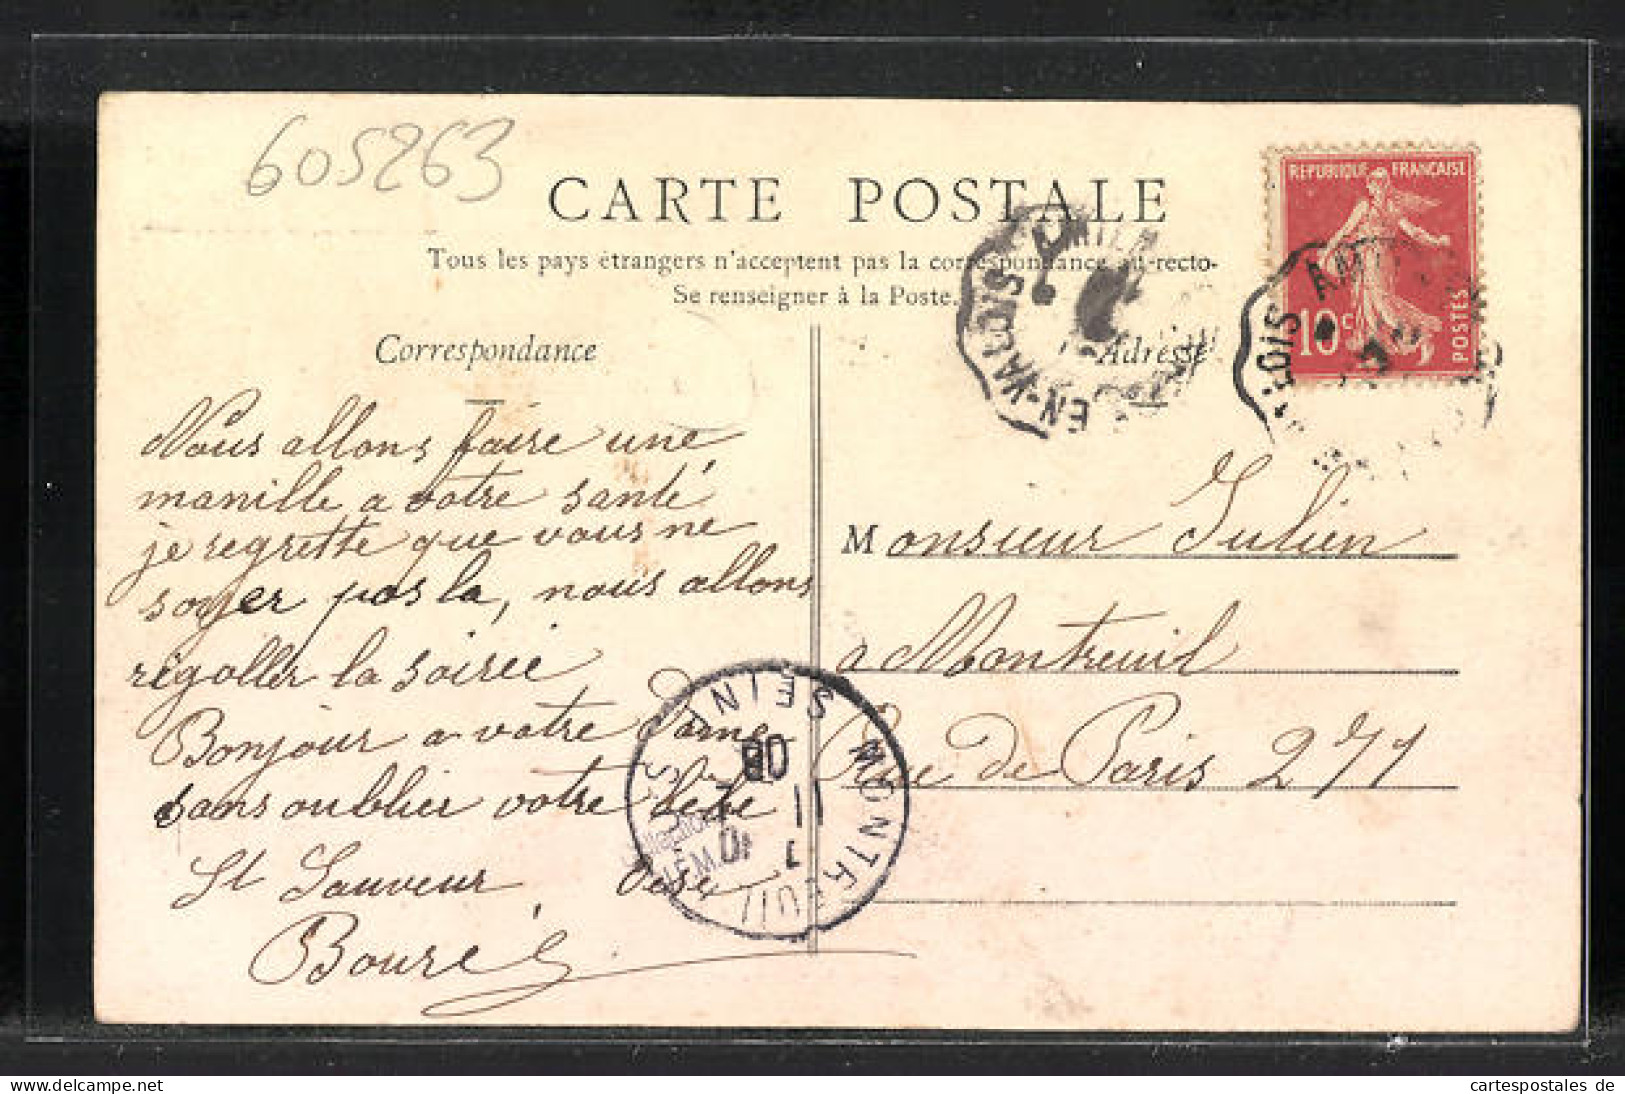 605263
CARTE POSTALE
Tous les pays étrangers n'acceptent pas la correspondance au-recto-
Se renseigner à la Poste.
Correspondance
Nous allons faire une
manille a votre santé
je regrette que vous ne
soyer pas la, nous allons
rigoller la soirée
Bonjour a votre Dame
sans oublier votre bebe
St Sauveur, Oise
Bouré
Adresse
Monsieur Julien
a Montreuil
Rue de Paris 271
REPUBLIQUE FRANÇAISE
10c
POSTES
EN-VALOIS AMIEN
LOIS AM
MONTREUIL S.S. SEINE
11
08
delcampe.net
cartespostales de